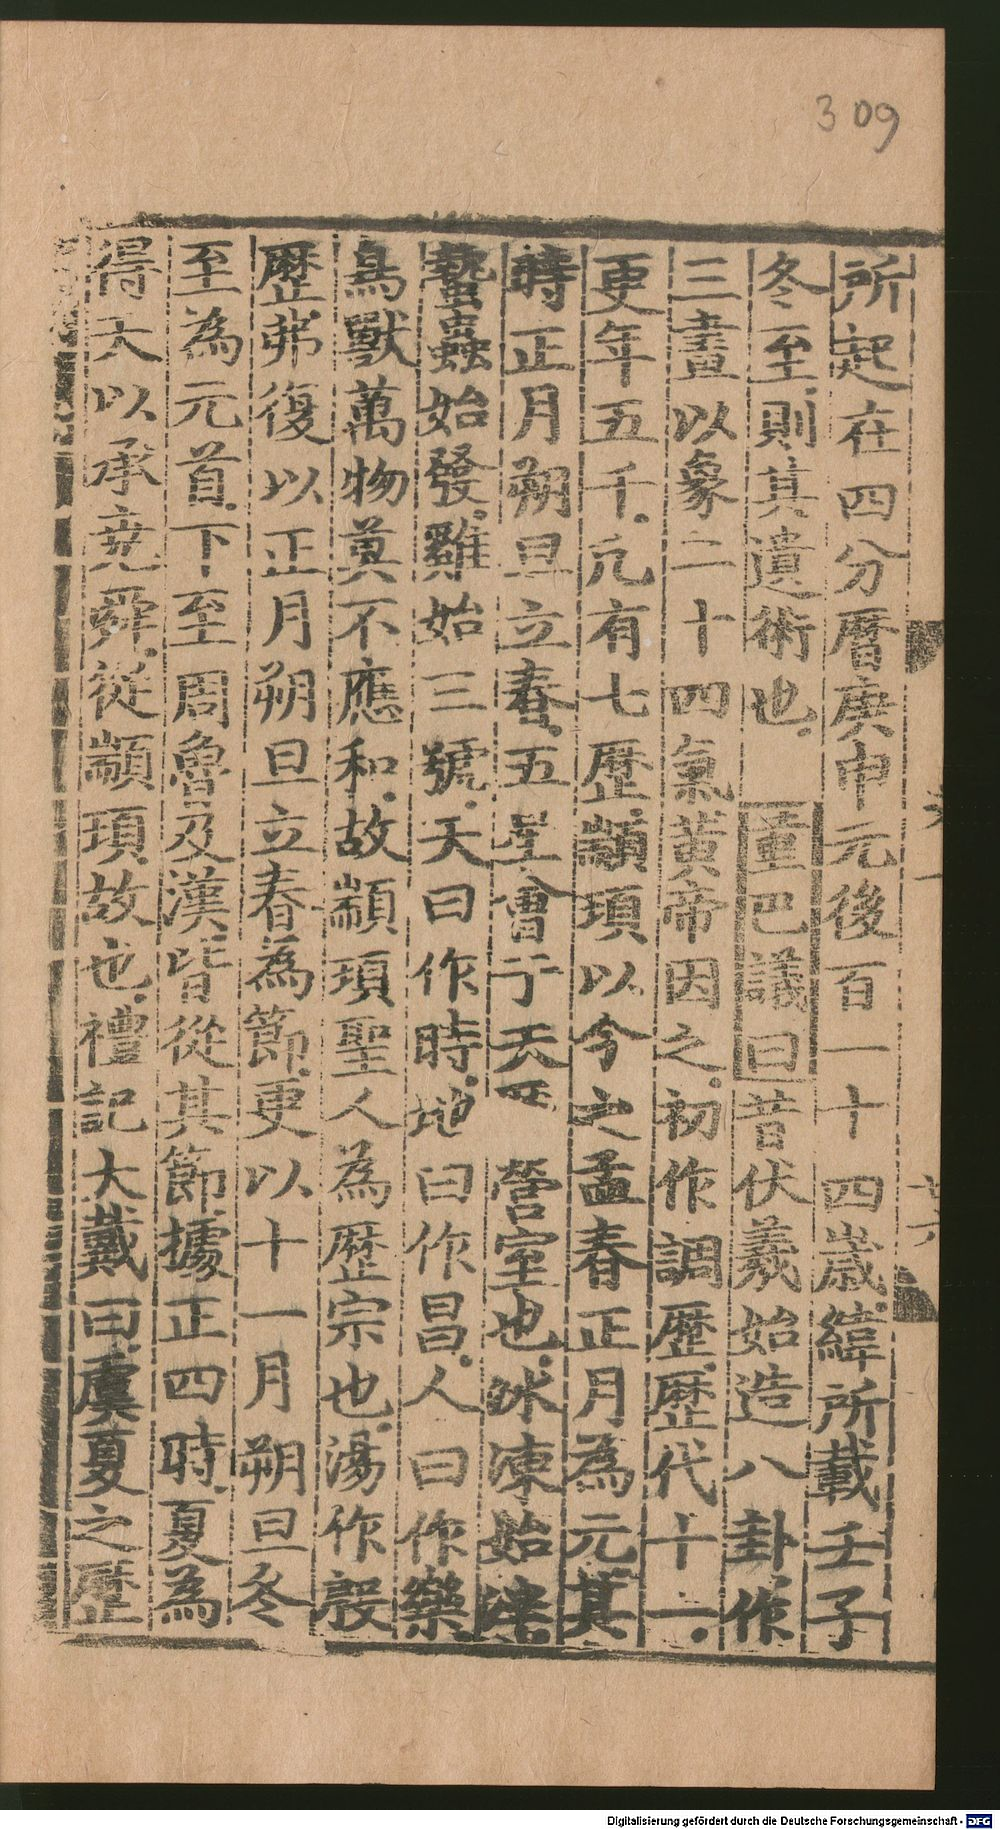 309
所起在四分曆庚申元後百一十四歲緯所載壬子
冬至則其遺術也董巴議曰昔伏羲始造八卦作
三畫以象二十四氣黃帝因之初作調歷歷代十一
更年五千凢有七歷顓頊以今之孟春正月為元其
時正月朔旦立春五星會于天 營室也冰凍始泮
蟄蟲始發雞始三號天曰作時地曰作昌人曰作樂
鳥獸萬物莫不應和故顓頊聖人為歷宗也湯作殷
歷弗復以正月朔旦立春為節更以十一月朔旦冬
至為元首下至周魯及漢皆從其節據正四時夏為
得天以承堯舜從顓頊故也禮記大戴曰虞夏之歷
Digitalisierung gefördert durch die Deutsche Forschungsgemeinschaft - DFG